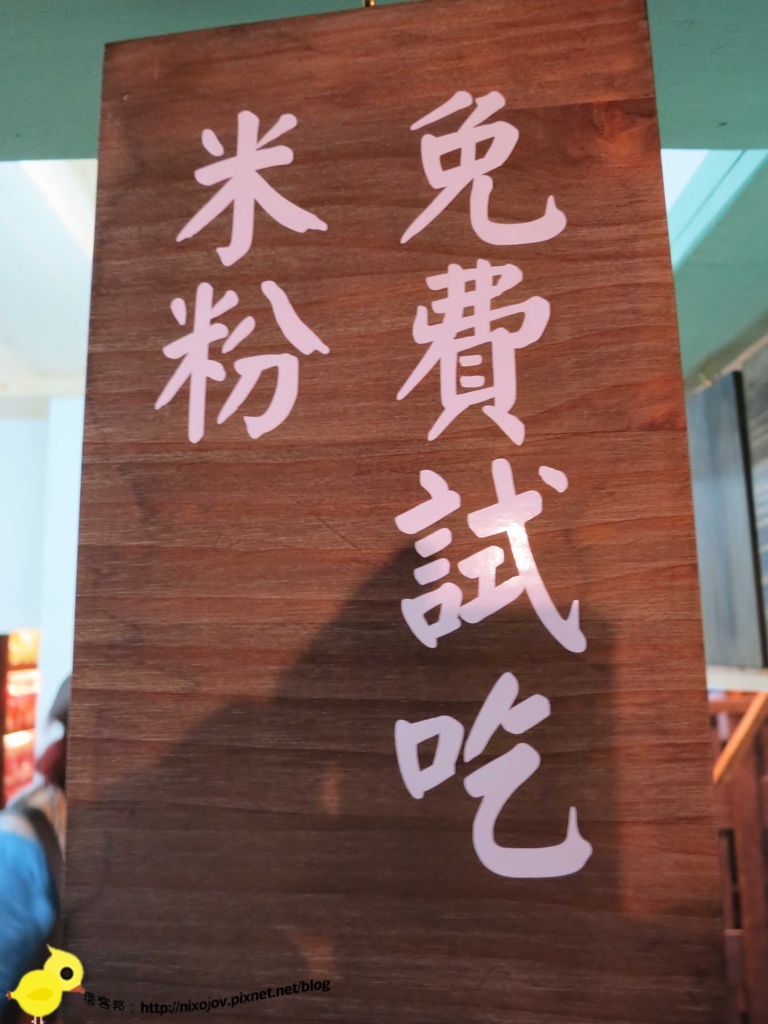 免費試吃
米粉
痞客邦：http://nixojov.pixnet.net/blog